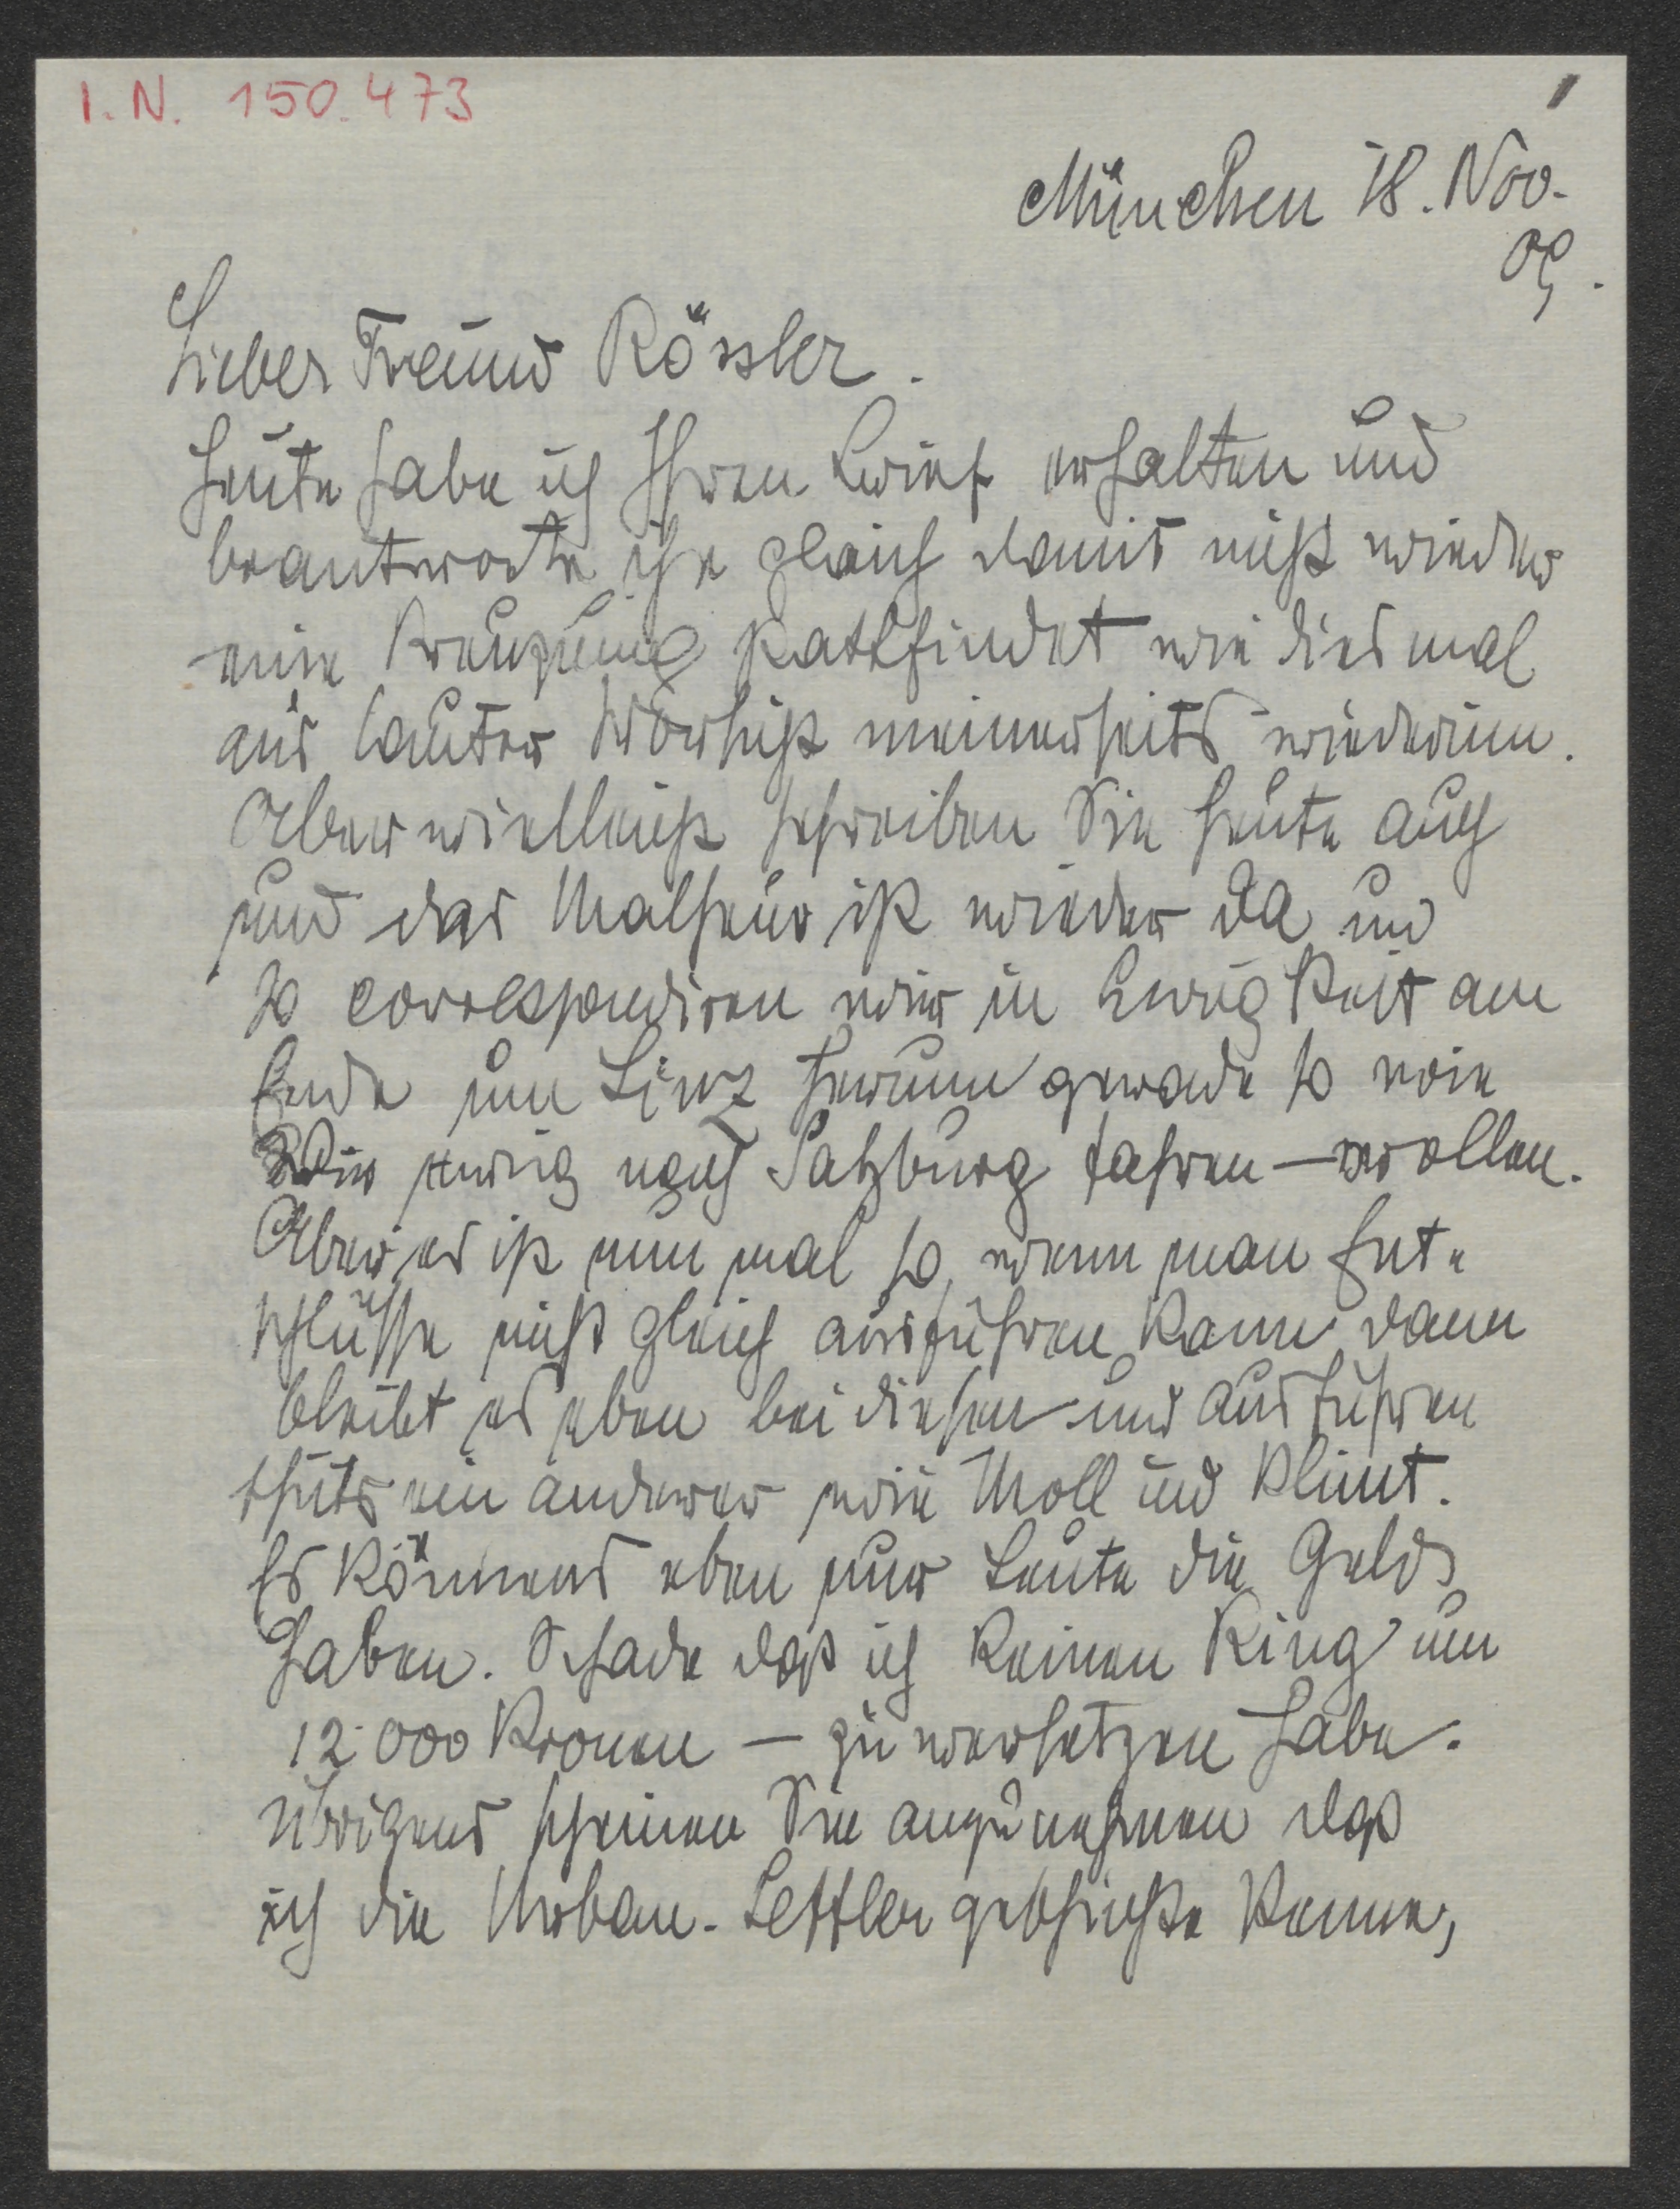 I. N. 150.473
1
München 18. Nov.
09.
Lieber Freund Rössler.
Heute habe ich Ihren Brief erhalten und
beantworte ihn gleich damit nicht wieder
eine Kreuzung stattfindet wie diesmal
aus lauter Vorsicht meinerseits wiederum.
Aber vielleicht schreiben Sie heute auch
und das Malheur ist wieder da und
so correspondiren wir in Ewigkeit am
Ende um Linz herum gerade so wie
Wir ewig nach Salzburg fahren – wollen.
Aber es ist nun mal so, wenn man Ent-
schlüsse nicht gleich ausführen kann dann
bleibt es eben bei diesen und ausführen
thuts ein anderer wie Moll und Klimt.
Es könnens eben nur Leute die Geld
haben. Schade daß ich keinen Ring um
12.000 Kronen – zu versetzen habe.
Übrigens scheinen Sie anzunehmen daß
ich die Urban-Leffler geschichte kenne,